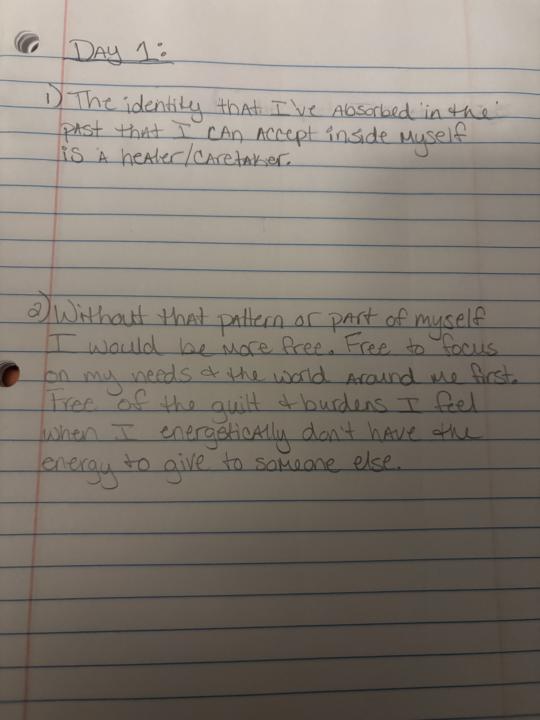 DAY 1:
1) The identity that I've absorbed in the
past that I can accept inside myself
is a healer/caretaker.
2) Without that pattern or part of myself
I would be more free. Free to focus
on my needs & the world around me first.
Free of the guilt & burdens I feel
when I energetically don't have the
energy to give to someone else.